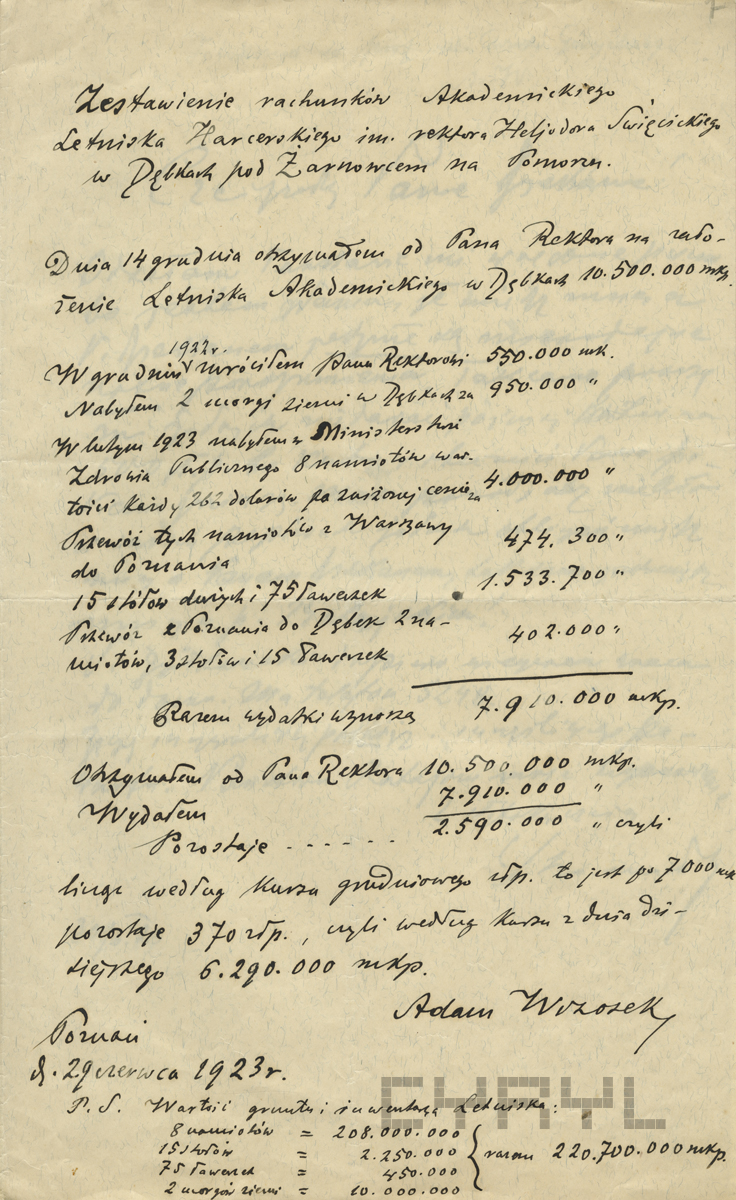 7
Zestawienie rachunków Akademickiego
Letniska Harcerskiego im. rektora Heljodora Święcickiego
w Dębkach pod Żarnowcem na Pomorzu.
Dnia 14 grudnia otrzymałem od Pana Rektora na zało-
żenie Letniska Akademickiego w Dębkach 10.500.000 mkp.
1922 r.
W grudniu zwróciłem Panu Rektorowi 550.000 mk.
Nabyłem 2 morgi ziemi w Dębkach za 950.000 "
W lutym 1923 nabyłem w Ministerstwie
Zdrowia Publicznego 8 namiotów war-
tości każdy 262 dolarów po zniżonej cenie za 4.000.000 "
Przewóz tych namiotów z Warszawy
do Poznania 474.300 "
15 stołów dużych i 75 ławeczek 1.533.700 "
Przewóz z Poznania do Dębek 2 na-
miotów, 3 stołów i 15 ławeczek 402.000 "
Razem wydatki wynoszą 7.910.000 mkp.
Otrzymałem od Pana Rektora 10.500.000 mkp.
Wydałem 7.910.000 "
Pozostaje - - - - - - 2.590.000 " czyli
licząc według kursu grudniowego złp. to jest po 7000 mk
pozostaje 370 złp., czyli według kursu z dnia dzi-
siejszego 6.290.000 mkp.
Adam Wrzosek
Poznań
d. 29 czerwca 1923 r.
P.S. Wartość gruntu i inwentarza Letniska:
8 namiotów = 208.000.000
15 stołów = 2.250.000
75 ławeczek = 450.000
2 morgów ziemi = 10.000.000
razem 220.700.000 mkp.